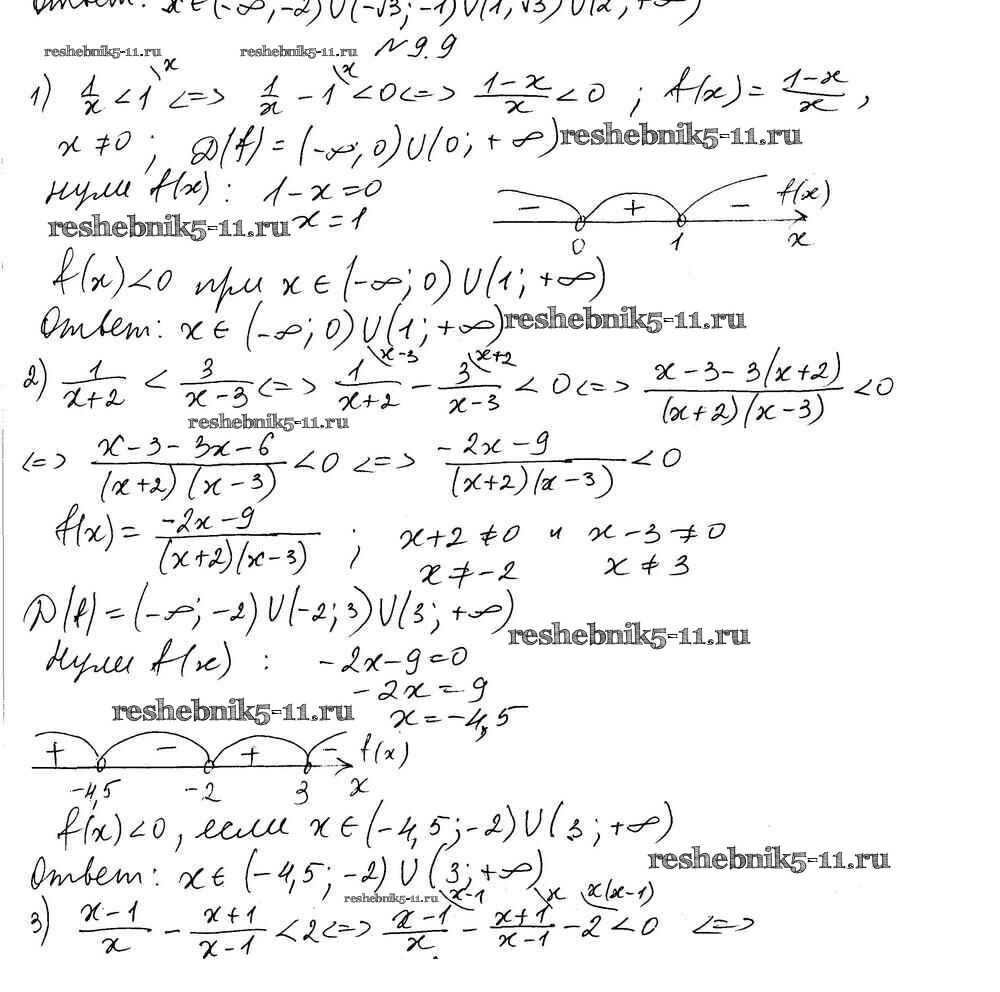 Ответ: x ∈ (-∞; -2) ∪ (-√3; -1) ∪ (1; √3) ∪ (2; +∞)
reshebnik5-11.ru reshebnik5-11.ru № 9.9
1) 1/x < 1 \x <=> 1/x - 1 \x < 0 <=> (1-x)/x < 0 ; f(x) = (1-x)/x ,
x ≠ 0 ; D(f) = (-∞; 0) ∪ (0; +∞) reshebnik5-11.ru
нули f(x) : 1-x=0
reshebnik5-11.ru x=1
- + - f(x)
0 1 x
f(x)<0 при x ∈ (-∞; 0) ∪ (1; +∞)
Ответ: x ∈ (-∞; 0) ∪ (1; +∞) reshebnik5-11.ru
2) 1/(x+2) < 3/(x-3) <=> 1/(x+2) \x-3 - 3/(x-3) \x+2 < 0 <=> (x-3-3(x+2))/((x+2)(x-3)) < 0
reshebnik5-11.ru
<=> (x-3-3x-6)/((x+2)(x-3)) < 0 <=> (-2x-9)/((x+2)(x-3)) < 0
f(x) = (-2x-9)/((x+2)(x-3)) ; x+2 ≠ 0 и x-3 ≠ 0
x ≠ -2 x ≠ 3
D(f) = (-∞; -2) ∪ (-2; 3) ∪ (3; +∞)
reshebnik5-11.ru
Нули f(x) : -2x-9=0
-2x=9
reshebnik5-11.ru x=-4,5
+ - + - f(x)
-4,5 -2 3 x
f(x)<0, если x ∈ (-4,5; -2) ∪ (3; +∞)
reshebnik5-11.ru
Ответ: x ∈ (-4,5; -2) ∪ (3; +∞)
reshebnik5-11.ru
3) (x-1)/x - (x+1)/(x-1) < 2 <=> (x-1)/x \x-1 - (x+1)/(x-1) \x - 2 \x(x-1) < 0 <=>